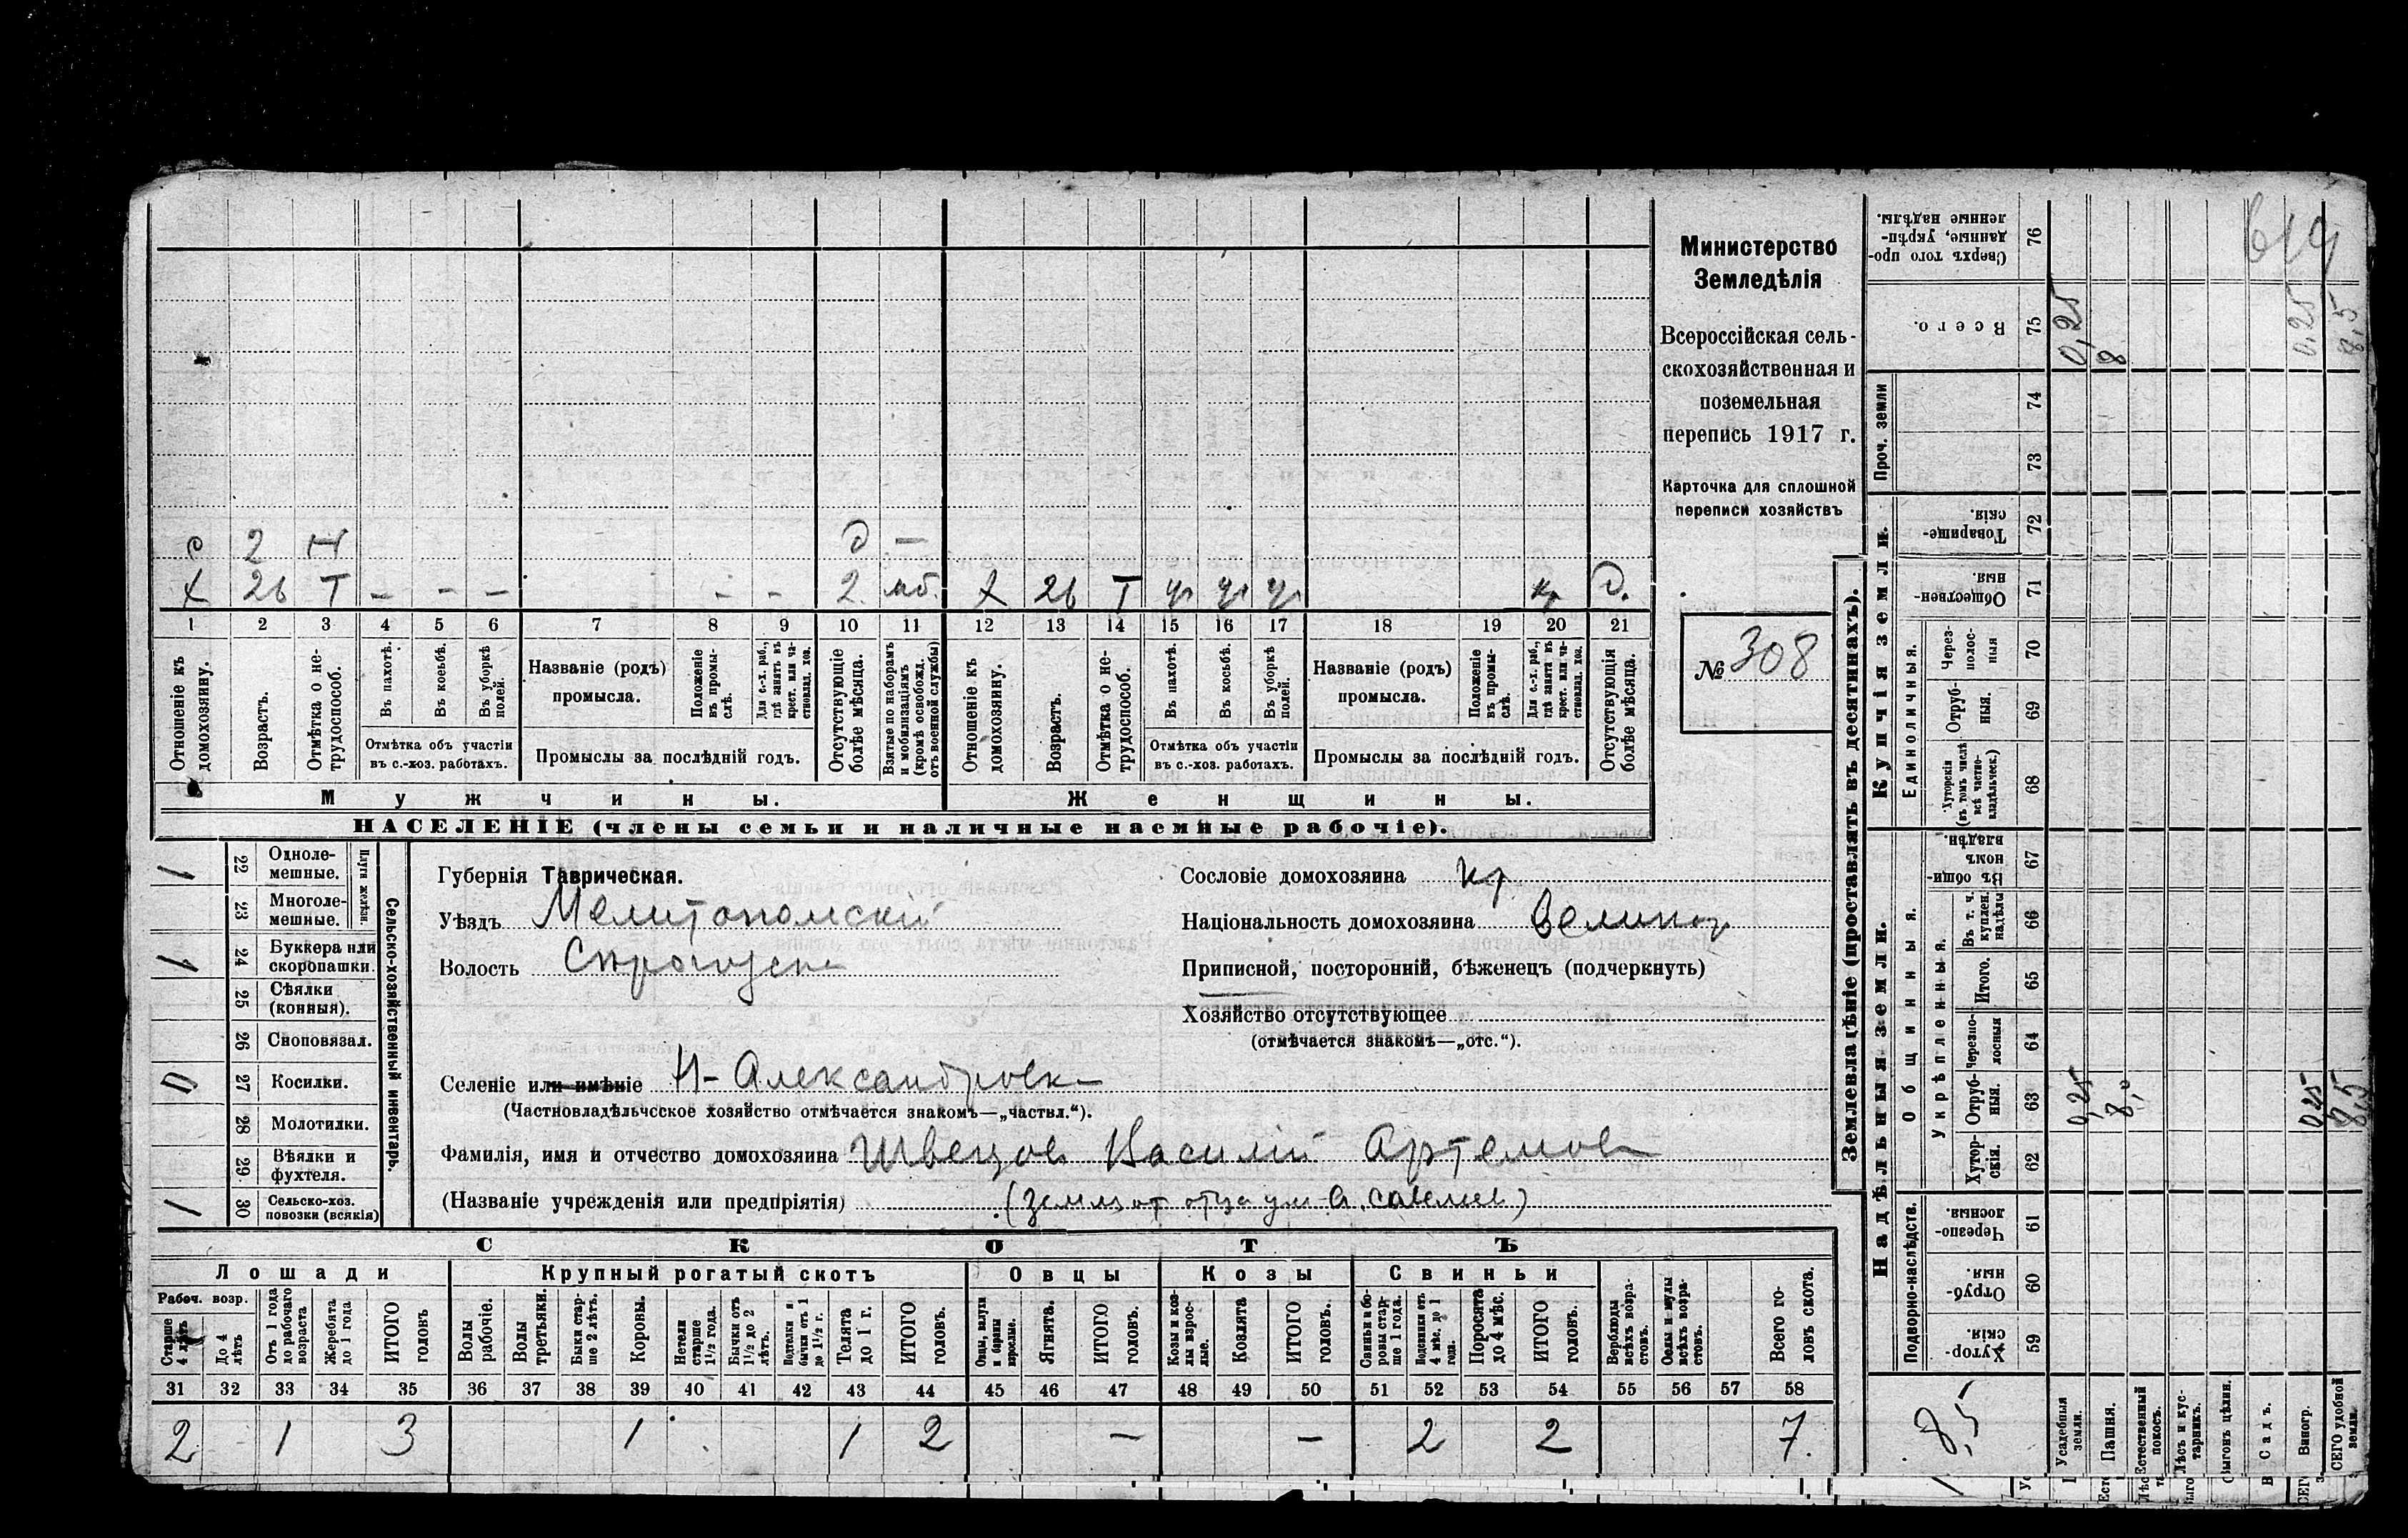 Министерство
Земледѣлія
Всероссійская сель-
скохозяйственная и
поземельная
перепись 1917 г.
Карточка для сплошной
переписи хозяйствъ
№ 308
с 2 Н О —
Х 26 Т – – – – – 2 моб. Х 26 Т кр О.
1 2 3 4 5 6 7 8 9 10 11 12 13 14 15 16 17 18 19 20 21
Отношеніе къ домохозяину.
Возрастъ.
Отмѣтка о не-трудоспособ.
Въ пахотѣ.
Въ косьбѣ.
Въ уборкѣ полей.
Отмѣтка объ участіи
въ с.-хоз. работахъ.
Названіе (родъ)
промысла.
Положеніе въ промы-слѣ.
Для с.-х. раб., гдѣ занятъ въ крест. или ча-стновлад. хоз.
Промыслы за послѣдній годъ.
Отсутствующіе болѣе мѣсяца.
Взятые по наборамъ и мобилизаціямъ (кромѣ освобожд. отъ военной службы)
Отношеніе къ домохозяину.
Возрастъ.
Отмѣтка о не-трудоспособ.
Въ пахотѣ.
Въ косьбѣ.
Въ уборкѣ полей.
Отмѣтка объ участіи
въ с.-хоз. работахъ.
Названіе (родъ)
промысла.
Положеніе въ промы-слѣ.
Для с.-х. раб., гдѣ занята въ крест. или ча-стновлад. хоз.
Промыслы за послѣдній годъ.
Отсутствующія болѣе мѣсяца.
Мужчины.
Женщины.
НАСЕЛЕНІЕ (члены семьи и наличные наемные рабочіе).
1 22 Одноле-мешные.
23 Многоле-мешные.
Плуги желѣзн.
1 24 Буккера или скоропашки.
25 Сѣялки (конныя).
26 Сноповязал.
0 27 Косилки.
28 Молотилки.
29 Вѣялки и фухтеля.
1 30 Сельско-хоз. повозки (всякія)
Сельско-хозяйственный инвентарь.
Губернія Таврическая.
Уѣздъ Мелитопольскій
Волость
Селеніе или имѣніе Н-Александровк
(Частновладѣльческое хозяйство отмѣчается знакомъ—„частвл.“).
Фамилія, имя и отчество домохозяина Швецов Василій Артемов
(Названіе учрежденія или предпріятія) (земля от отца
Сословіе домохозяина кр.
Національность домохозяина Великор
Приписной, посторонній, бѣженецъ (подчеркнуть)
Хозяйство отсутствующее
(отмѣчается знакомъ—„отс.“).
СКОТЪ
Лошади
Крупный рогатый скотъ
Овцы
Козы
Свиньи
Рабоч. возр.
Старше 4 лѣтъ
До 4 лѣтъ
Отъ 1 года до рабочаго возраста
Жеребята до 1 года
ИТОГО головъ
Волы рабочіе.
Волы третьяки.
Быки стар-ше 2 лѣтъ.
Коровы.
Нетели старше 1½ года.
Бычки отъ 1½ до 2 лѣтъ.
Подтелки и бычки отъ 1 до 1½ г.
Телята до 1 г.
ИТОГО головъ.
Овцы, валухи и бараны взрослые.
Ягнята.
ИТОГО головъ.
Козы и коз-лы взрос-лые.
Козлята
ИТОГО головъ.
Свиньи и бо-ровы стар-ше 1 года.
Подсвинки отъ 4 мѣс. до 1 года.
Поросята до 4 мѣс.
ИТОГО головъ.
Верблюды всѣхъ возра-стовъ.
Ослы и мулы всѣхъ возра-стовъ.
Всего го-ловъ скота.
31 32 33 34 35 36 37 38 39 40 41 42 43 44 45 46 47 48 49 50 51 52 53 54 55 56 57 58
2 1 3 1 1 2 — — 2 2 7.
Землевладѣніе (проставлять въ десятинахъ).
Надѣльныя земли.
Купчія земли.
Проч. земли
Подворно-наслѣдств.
Общинныя.
Укрѣпленныя.
Единоличныя.
Хутор-скія. 59
Отруб-ныя. 60
Черезпо-лосныя. 61
Хутор-скія. 62
Отруб-ныя. 63
Черезпо-лосныя 64
Итого. 65
Въ т. ч. куплен. надѣлы 66
Въ общин-номъ владѣн. 67
Хуторскія (въ томъ числѣ всѣ частно-владѣльческ.) 68
Отруб-ныя. 69
Через-полос-ныя 70
Обществен-ныя. 71
Товарище-скія. 72
73
74
Всего. 75
Сверхъ того про-данные, укрѣп-ленные надѣлы. 76
8,5
Усадебныя земли. 0,25 0,25
Пашня. 8,0 8
Естественный покосъ.
Лѣсъ и кус-тарникъ.
Выгонъ цѣлин.
Садъ.
Виногр. 0,25 0,25
ВСЕГО удобной земли. 8,5 8,5
619